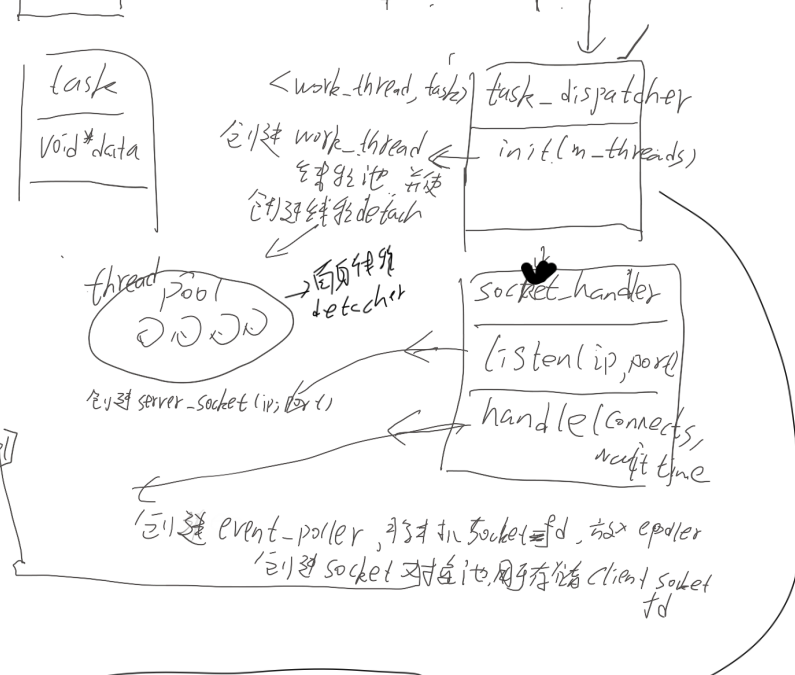 task
void*data
<work_thread, task>
task_dispatcher
init(m_threads)
创建 work_thread
线程池 并使
创建线程detach
thread
pool
线程
detacher
socket_handler
listen(ip,port)
handle(connects,
wait time
创建 server_socket(ip, port)
创建 event_poller, socket fd, epoller
创建 socket 对象池,用于存储 client socket
fd